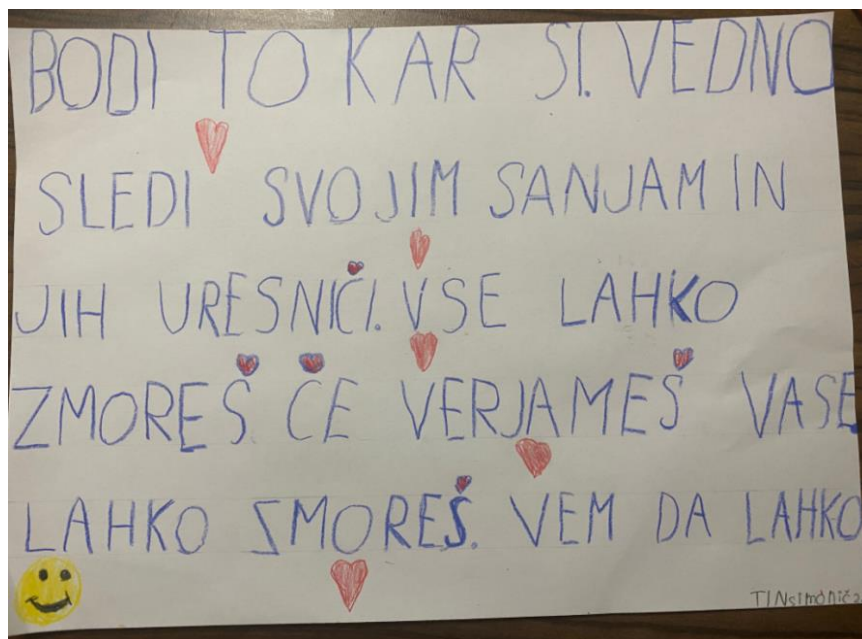 BODI TO KAR SI. VEDNO
SLEDI SVOJIM SANJAM IN
JIH URESNIČI. VSE LAHKO
ZMOREŠ. ČE VERJAMEŠ VASE
LAHKO ZMOREŠ. VEM DA LAHKO
TIN SIMONIČ 2